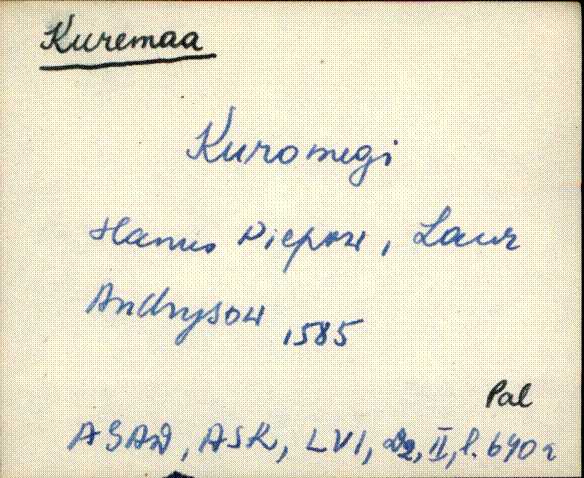 Kuremaa
Kuromegi
Hanus Piepow, Laur
Andrysow, 1585
Pal
AGAD, ASK, LVI, D2, II, l. 640